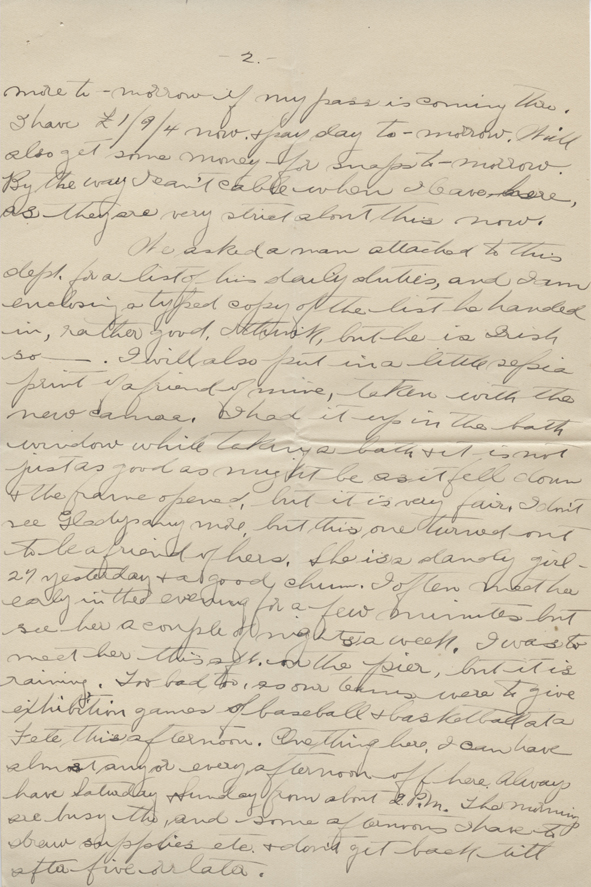 - 2. -
more to-morrow if my pass is coming thro.
I have £1/9/4 now & pay day to-morrow. Will
also get some money for snaps to-morrow.
By the way I can't cable when I leave here,
as they are very strict about this now.
We asked a man attached to this
dept. for a list of his daily duties, and I am
enclosing a typed copy of the list he handed
in, rather good, I think, but he is Irish
so — . I will also put in a little sepia
print of a friend of mine, taken with the
new camae. I had it up in the bath
window while taking a bath & it is not
just as good as might be as it fell down
& the frame opened, but it is very fair. I don't
see Gladys any more, but this one turned out
to be a friend of hers. She is a dandy girl -
27 yesterday & a good chum. I often meet her
early in the evening for a few minutes but
see her a couple of nights a week. I was to
meet her this aft. on the pier, but it is
raining. Too bad too, as our teams were to give
exhibition games of baseball & basketball at a
Fete, this afternoon. One thing here, I can have
almost any or every afternoon off here. Always
have Saturday & Sunday from about 2 P.M. The mornings
are busy tho, and some afternoons I have to
draw supplies etc. & don't get back till
after five or later.